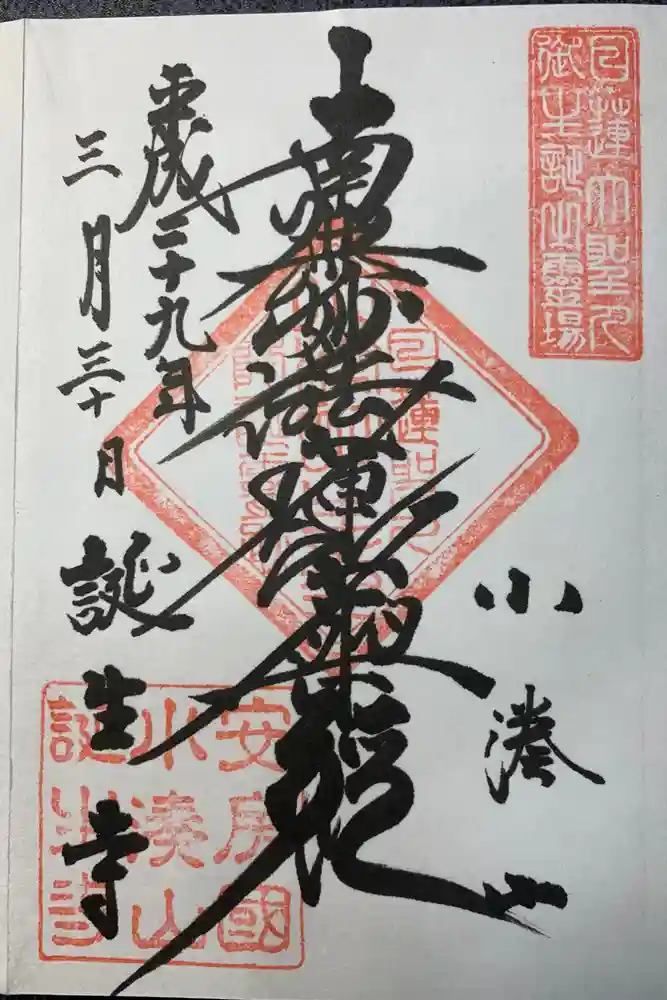 日蓮大聖人
御生誕之靈場
小湊山
南無妙法蓮華經
平成二十九年
三月三十日
誕生寺
安房國
小湊山
誕生寺